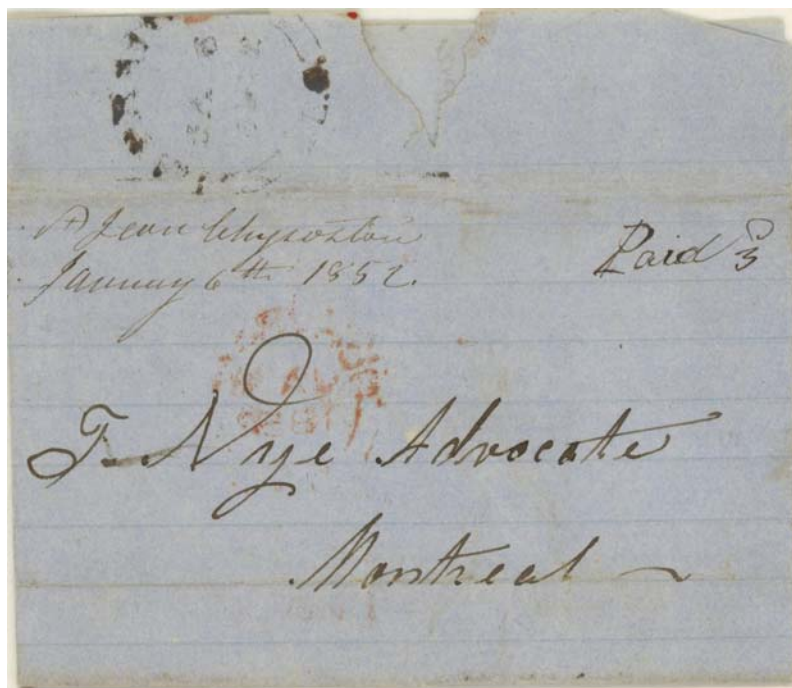 St Jean Chrysostom
January 6th 1852.
Paid 3
T. Nye Advocate
Montreal